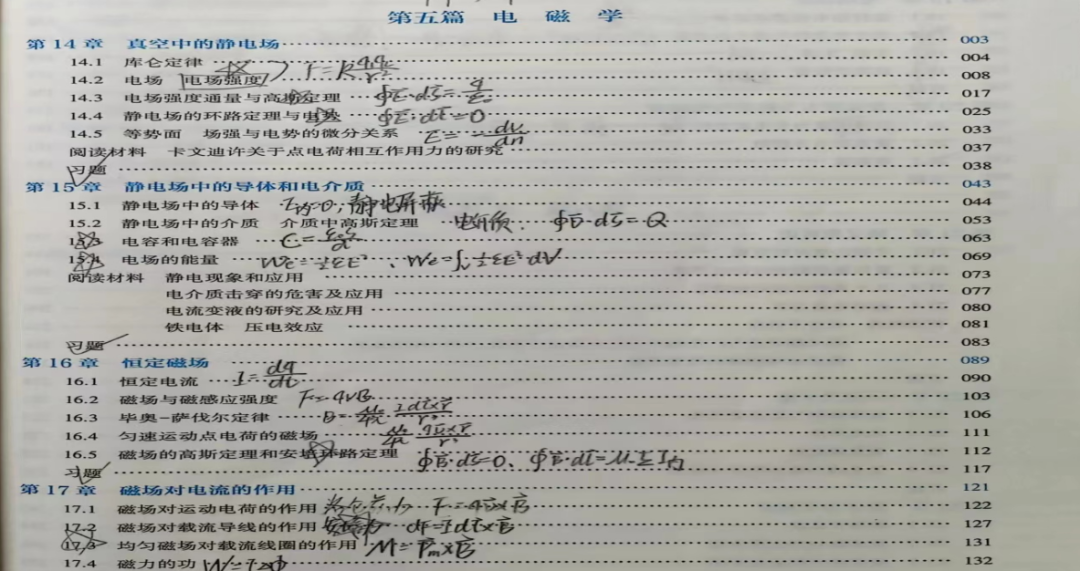 第五篇 电 磁 学
第14章 真空中的静电场 003
14.1 库仑定律 F=K q₁q₂/r² 004
14.2 电场 电场强度 008
14.3 电场强度通量与高斯定理 ∮E⃗·dS⃗=q/ε₀ 017
14.4 静电场的环路定理与电势 ∮E⃗·dl⃗=0 025
14.5 等势面 场强与电势的微分关系 E=-dV/dn 033
阅读材料 卡文迪许关于点电荷相互作用力的研究 037
习题 038
第15章 静电场中的导体和电介质 043
15.1 静电场中的导体 E内=0, 静电屏蔽 044
15.2 静电场中的介质 介质中高斯定理 ∮D⃗·dS⃗=Q 053
15.3 电容和电容器 C=ε₀S/d 063
15.4 电场的能量 We=½εE²、We=∫v ½εE²dV 069
阅读材料 静电现象和应用 073
电介质击穿的危害及应用 077
电流变液的研究及应用 080
铁电体 压电效应 081
习题 083
第16章 恒定磁场 089
16.1 恒定电流 I=dq/dt 090
16.2 磁场与磁感应强度 F=qvB 103
16.3 毕奥-萨伐尔定律 B=μ₀/4π Idl⃗×r⃗/r³ 106
16.4 匀速运动点电荷的磁场 μ₀/4π qv⃗×r⃗/r³ 111
16.5 磁场的高斯定理和安培环路定理 ∮B⃗·dS⃗=0、∮B⃗·dl⃗=μ₀ΣI内 112
习题 117
第17章 磁场对电流的作用 121
17.1 磁场对运动电荷的作用 洛仑兹力 F=qv⃗×B⃗ 122
17.2 磁场对载流导线的作用 安培力 dF=Idl⃗×B⃗ 127
17.3 均匀磁场对载流线圈的作用 M=P⃗m×B⃗ 131
17.4 磁力的功 132